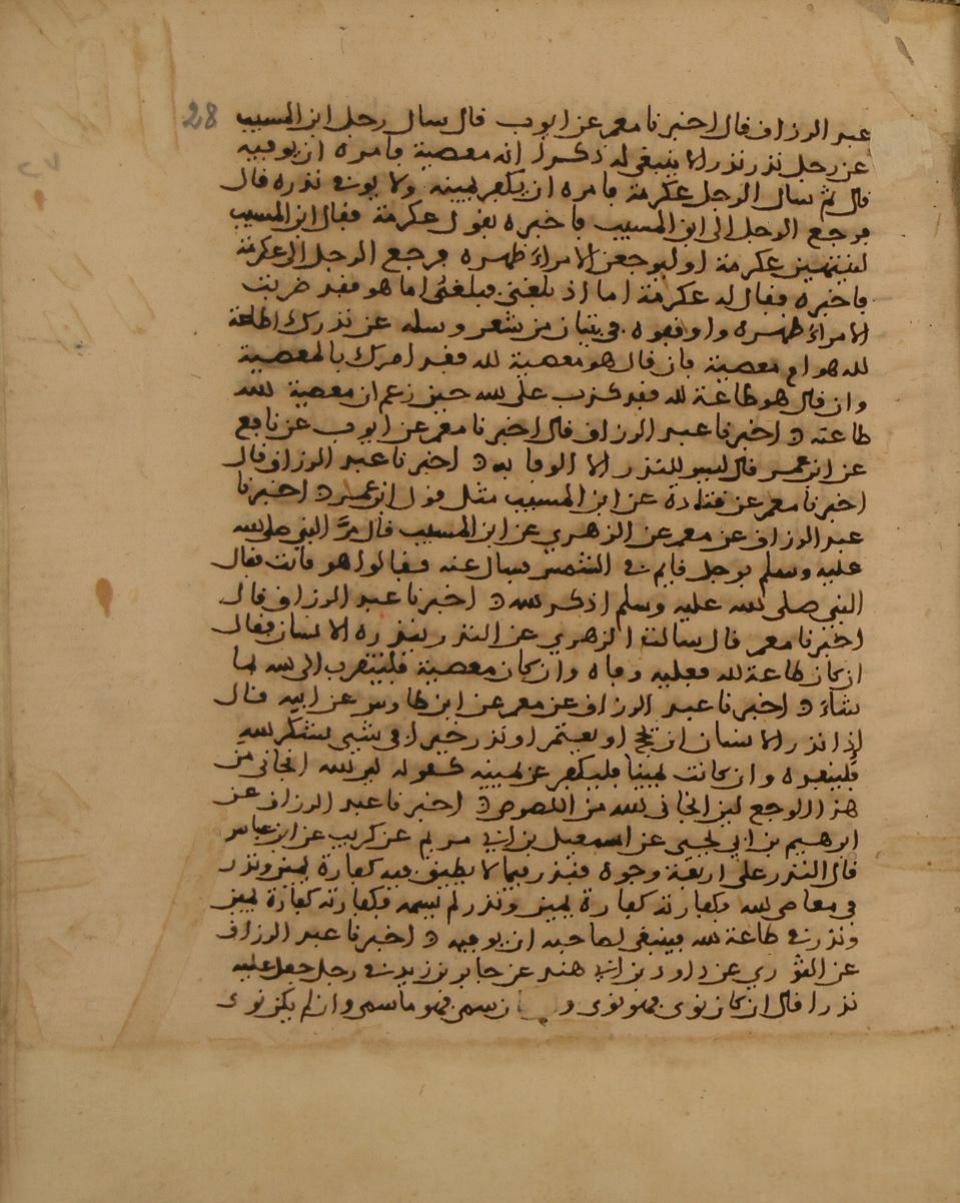 28
عبد الرزاق قال اخبرنا معمر عن ايوب قال سال رجل ابن المسيب
عن رجل نذر نذرا لا ينبغي له ذكر انه معصية فامره ان يوفيه
قال ثم سال الرجل عكرمة فامره ان يكفر يمينه ولا يوفي نذره قال
فرجع الرجل الى ابن المسيب فاخبره بقول عكرمة فقال ابن المسيب
لينتهين عكرمة او ليوجعن الامراء ظهره فرجع الرجل الى عكرمة
فاخبره فقال له عكرمة اما اذ بلغتني فبلغه اما هو فقد ضربت
الامراء ظهره واوقفوه في تبان من شعر وسله عن نذرك اطاعة
لله هو ام معصية فان قال هو معصية لله فقد امرك بالمعصية
وان قال هو طاعة لله فقد كذب على الله حين زعم ان معصية الله
طاعته اخبرنا عبد الرزاق قال اخبرنا معمر عن ايوب عن نافع
عن ابن عمر قال ليس للنذر الا الوفا به اخبرنا عبد الرزاق قال
اخبرنا معمر عن قتادة عن ابن المسيب مثل قول ابن عمر اخبرنا
عبد الرزاق عن معمر عن الزهري عن ابن المسيب قال مر النبي صلى الله
عليه وسلم برجل قايم في الشمس فسال عنه فقالوا هو قانت فقال
النبي صلى الله عليه وسلم اذكر الله اخبرنا عبد الرزاق قال
اخبرنا معمر قال سالت الزهري عن النذر ينذره الانسان فقال
ان كان طاعة لله فعليه وفاه وان كان معصية فليتقرب الى الله بما
شاء اخبرنا عبد الرزاق عن معمر عن ابن طاوس عن ابيه قال
اذا نذر الانسان ان يحج او يعتمر او نذر خيرا في شي يشكر الله
فلينفذه وان كانت يمينا فليكفر عن يمينه كقوله لين الله انجاني من
هذا الوجع لين انجاني الله من اللصوص اخبرنا عبد الرزاق عن
ابرهيم بن ابي يحيى عن اسمعيل بن ابي مريم عن كريب عن ابن عباس
قال النذر على اربعة وجوه فنذر فيما لا يطيق فيه كفارة يمين ونذر
في معاصي الله فكفارته كفارة يمين ونذر لم يسمه فكفارته كفارة يمين
ونذر في طاعة الله فينبغي لصاحبه ان يوفيه اخبرنا عبد الرزاق
عن الثوري عن داود بن ابي هند عن جابر بن زيد في رجل جعل عليه
نذرا قال ان كان نوى فهو نوى و ان سمى فهو ما سمى وان لم يكن نوى